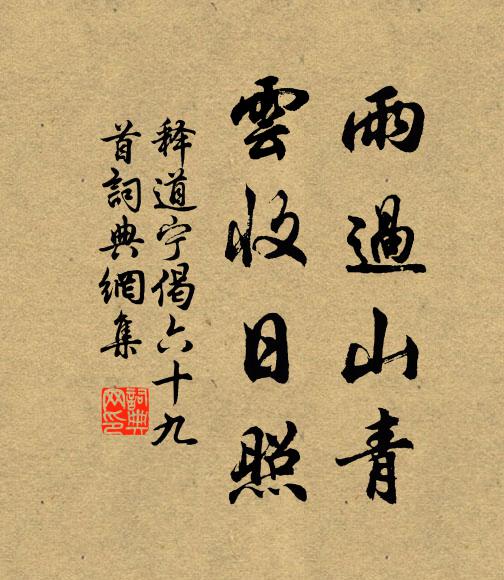 雨過山青
雲收日照
释道宁偈六十九
首詞典網集
詞典
网印